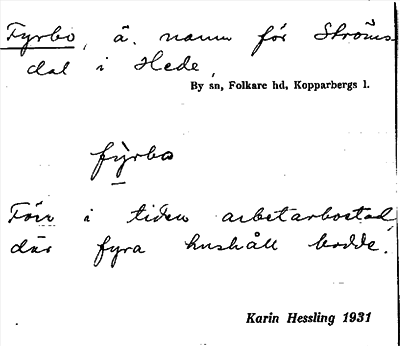 Fyrbo, ä. namn för Ströms-
dal i Hede,
By sn, Folkare hd, Kopparbergs l.
fy̆rbo
Förr i tiden arbetarbostad,
där fyra hushåll bodde.
Karin Hessling 1931